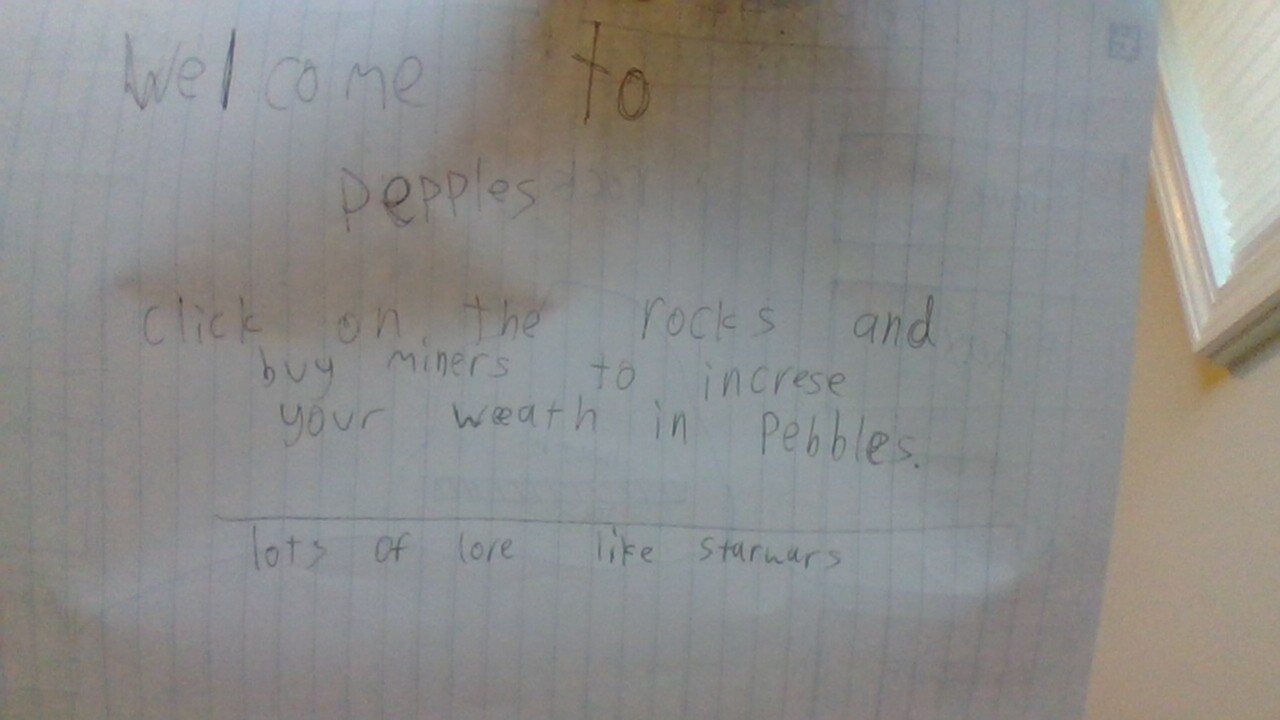 Welcome to
pepples
click on the rocks and
buy miners to increse
your weath in Pebbles.
lots of lore like starwars